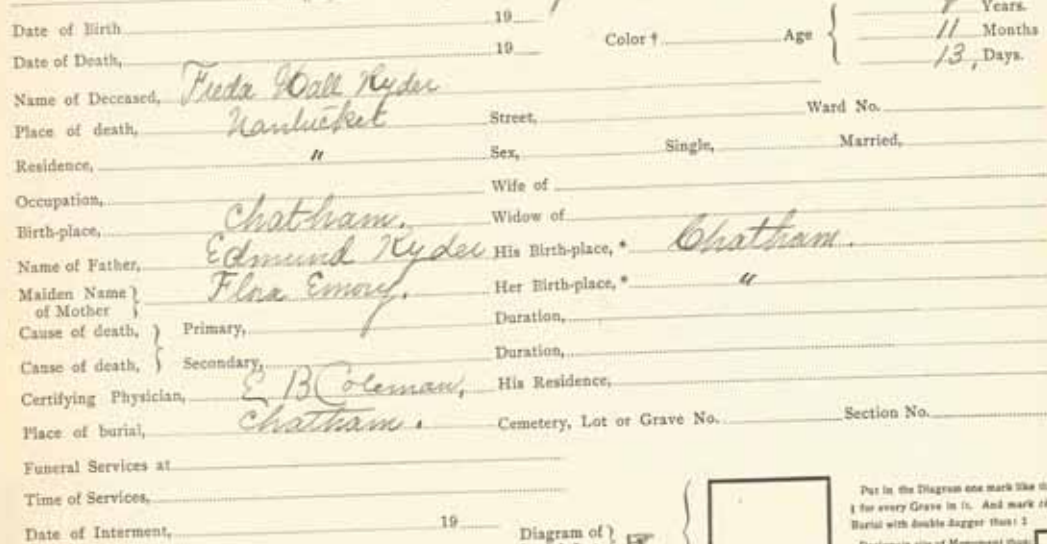 Date of Birth 19
Years.
Date of Death, 19 Color † Age 11 Months
13, Days.
Name of Deceased, Freda Hall Ryder
Place of death, Nantucket Street, Ward No.
Residence, " Sex, Single, Married,
Occupation, Wife of
Birth-place, Chatham. Widow of
Name of Father, Edmund Ryder His Birth-place, * Chatham.
Maiden Name of Mother Flora Emory. Her Birth-place, * "
Cause of death, Primary, Duration,
Cause of death, Secondary, Duration,
Certifying Physician, E B Coleman, His Residence,
Place of burial, Chatham. Cemetery, Lot or Grave No. Section No.
Funeral Services at
Time of Services,
Put in the Diagram one mark like
for every Grave in it. And mark
Burial with double dagger thus: ‡
Date of Interment, 19 Diagram of